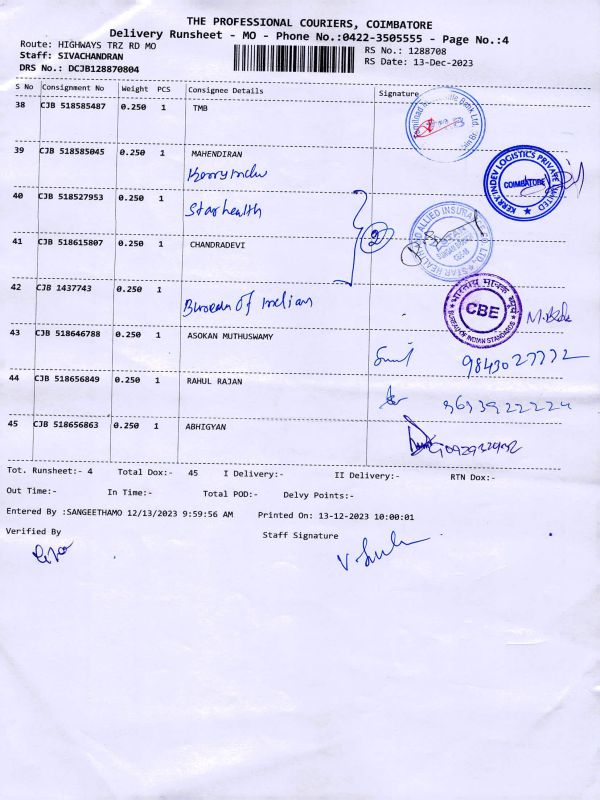 THE PROFESSIONAL COURIERS, COIMBATORE
Delivery Runsheet - MO - Phone No.:0422-3505555 - Page No.:4
Route: HIGHWAYS TRZ RD MO
RS No.: 1288708
Staff: SIVACHANDRAN
RS Date: 13-Dec-2023
DRS No.: DCJB128870804
S No Consignment No Weight PCS Consignee Details Signature
38 CJB 518585487 0.250 1 TMB
39 CJB 518585045 0.250 1 MAHENDIRAN
KERRY INDEV LOGISTICS PRIVATE LIMITED
COIMBATORE
40 CJB 518527953 0.250 1 Starhealth
2
41 CJB 518615807 0.250 1 CHANDRADEVI
42 CJB 1437743 0.250 1
Bureau of Indian
भारतीय मानक ब्यूरो
CBE
BUREAU OF INDIAN STANDARDS
43 CJB 518646788 0.250 1 ASOKAN MUTHUSWAMY
44 CJB 518656849 0.250 1 RAHUL RAJAN
45 CJB 518656863 0.250 1 ABHIGYAN
Tot. Runsheet:- 4 Total Dox:- 45 I Delivery:- II Delivery:- RTN Dox:-
Out Time:- In Time:- Total POD:- Delvy Points:-
Entered By :SANGEETHAMO 12/13/2023 9:59:56 AM Printed On: 13-12-2023 10:00:01
Verified By Staff Signature